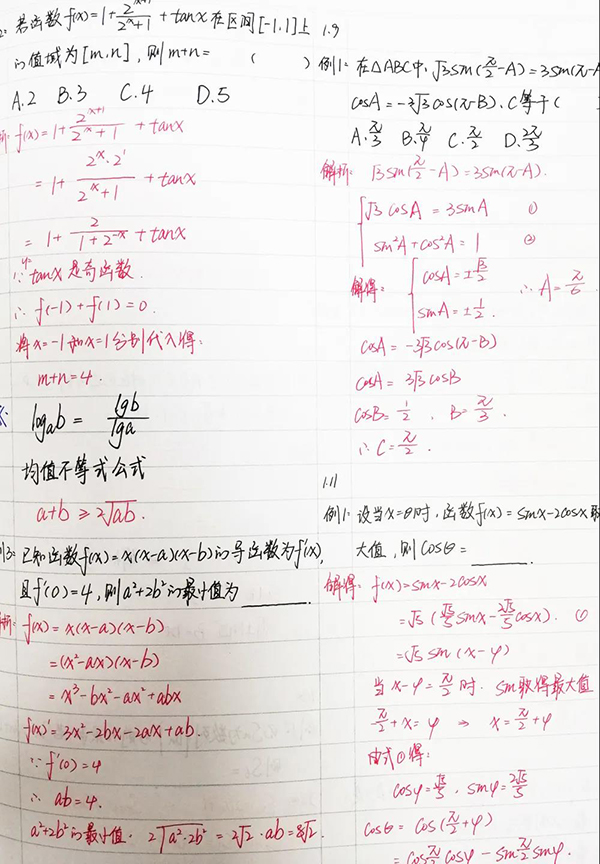 2. 若函数f(x)=1+2^(x+1)/(2^x+1)+tanx在区间[-1,1]上
的值域为[m,n],则m+n= ( )
A.2 B.3 C.4 D.5
析: f(x)=1+2^(x+1)/(2^x+1)+tanx
=1+2^x·2^1/(2^x+1)+tanx
=1+2/(1+2^-x)+tanx
∵ y=tanx是奇函数.
∴ f(-1)+f(1)=0.
将x=-1和x=1分别代入得:
m+n=4.
log_a b = lgb/lga
均值不等式公式
a+b≥2√ab.
例3: 已知函数f(x)=x(x-a)(x-b)的导函数为f'(x),
且f'(0)=4,则a²+2b²的最小值为______.
析: f(x)=x(x-a)(x-b)
=(x²-ax)(x-b)
=x³-bx²-ax²+abx
f(x)'=3x²-2bx-2ax+ab.
∵ f'(0)=4
∴ ab=4.
a²+2b²的最小值. 2√a²·2b² = 2√2·ab=8√2.
1.9
例1: 在△ABC中,√3sin(π/2-A)=3sin(π-A
cosA=-3√3cos(π-B).C等于(
A.π/3 B.π/4 C.π/2 D.2π/3
解析: √3sin(π/2-A)=3sin(π-A).
√3cosA=3sinA ①
sin²A+cos²A=1 ②
解得: cosA=±√3/2 ∴A=π/6.
sinA=±1/2.
cosA=-3√3cos(π-B)
cosA=3√3cosB
cosB=1/2, B=π/3.
∴C=π/2.
1.11
例1: 设当x=θ时,函数f(x)=sinx-2cosx取
大值,则cosθ=______.
解得: f(x)=sinx-2cosx
=√5(√5/5sinx-2√5/5cosx). ①
=√5sin(x-φ)
当x-φ=π/2时. sin取得最大值
π/2+x=φ ⇒ x=π/2+φ
由式①得:
cosφ=√5/5, sinφ=2√5/5
cosθ=cos(π/2+φ)
=cosπ/2cosφ-sinπ/2sinφ.